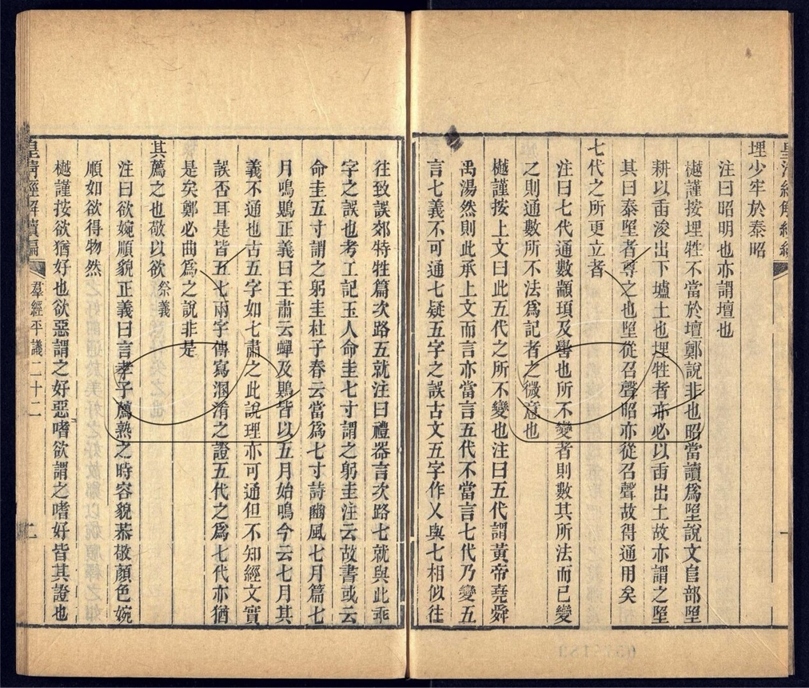 埋少牢於泰昭
注曰昭明也亦謂壇也
樾謹按埋牲不當於壇鄭說非也昭當讀爲垦說文𨸏部垦
耕以臿浚出下壚土也埋牲者亦必以臿出土故亦謂之垦
其曰泰垦者尊之也垦從召聲昭亦從召聲故得通用矣
七代之所更立者
注曰七代通數顓頊及嚳也所不變者則數其所法而已變
之則通數所不法爲記者之微意也
樾謹按上文曰此五代之所不變也注曰五代謂黃帝堯舜
禹湯然則此承上文而言亦當言五代不當言七代乃變五
言七義不可通七疑五字之誤古文五字作乂與七相似往
往致誤郊特牲篇次路五就注曰禮器言次路七就與此乖
字之誤也考工記玉人命圭七寸謂之躬圭注云故書或云
命圭五寸謂之躬圭杜子春云當爲七寸詩豳風七月篇七
月鳴鵙正義曰王肅云蟬及鵙皆以五月始鳴今云七月其
義不通也古五字如七肅之此說理亦可通但不知經文實
誤否耳是皆五七兩字傳寫溷淆之證五代之爲七代亦猶
是矣鄭必曲爲之說非是
其薦之也敬以欲 祭義
注曰欲婉順貌正義曰言孝子薦熟之時容貌恭敬顏色婉
順如欲得物然
樾謹按欲猶好也欲惡謂之好惡嗜欲謂之嗜好皆其證也
皇清經解續編 羣經平議二十二